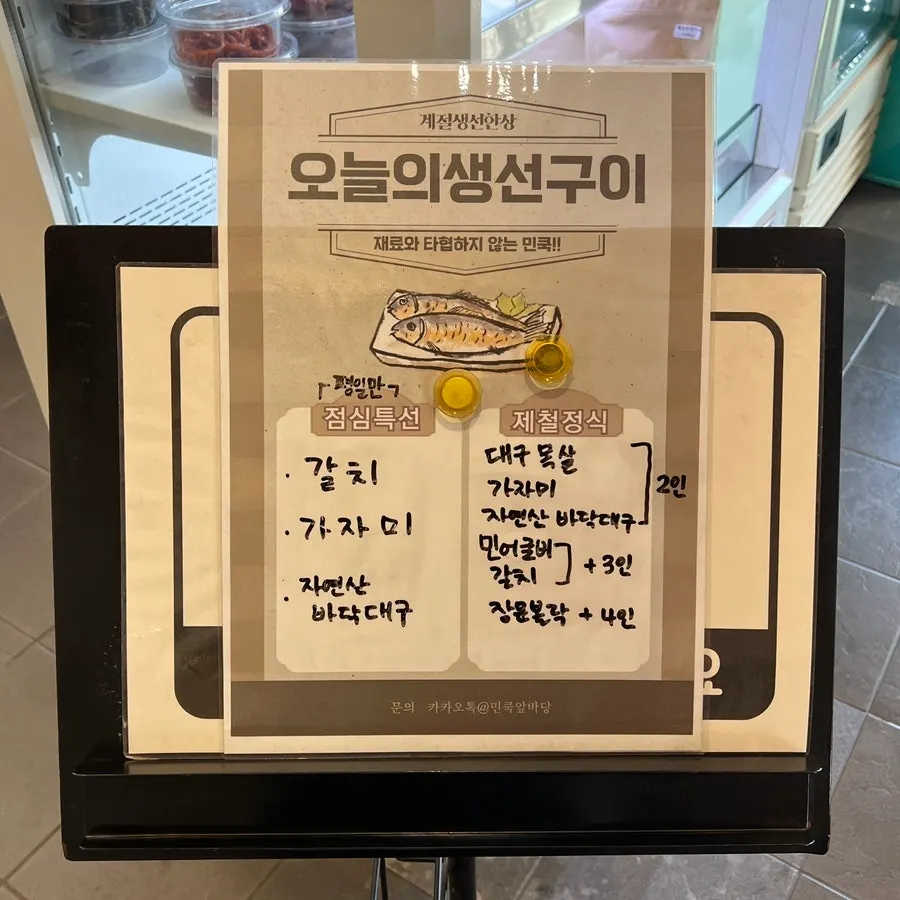 계절생선한상
오늘의생선구이
재료와 타협하지 않는 민쿡!!
「평일만」
점심특선
· 갈치
· 가자미
· 자연산
바닥대구
제철정식
대구 목살
가자미
자연산 바닥대구
2인
민어굴비
갈치
+3인
장문볼락 +4인
문의 카카오톡@민쿡앞바당
요